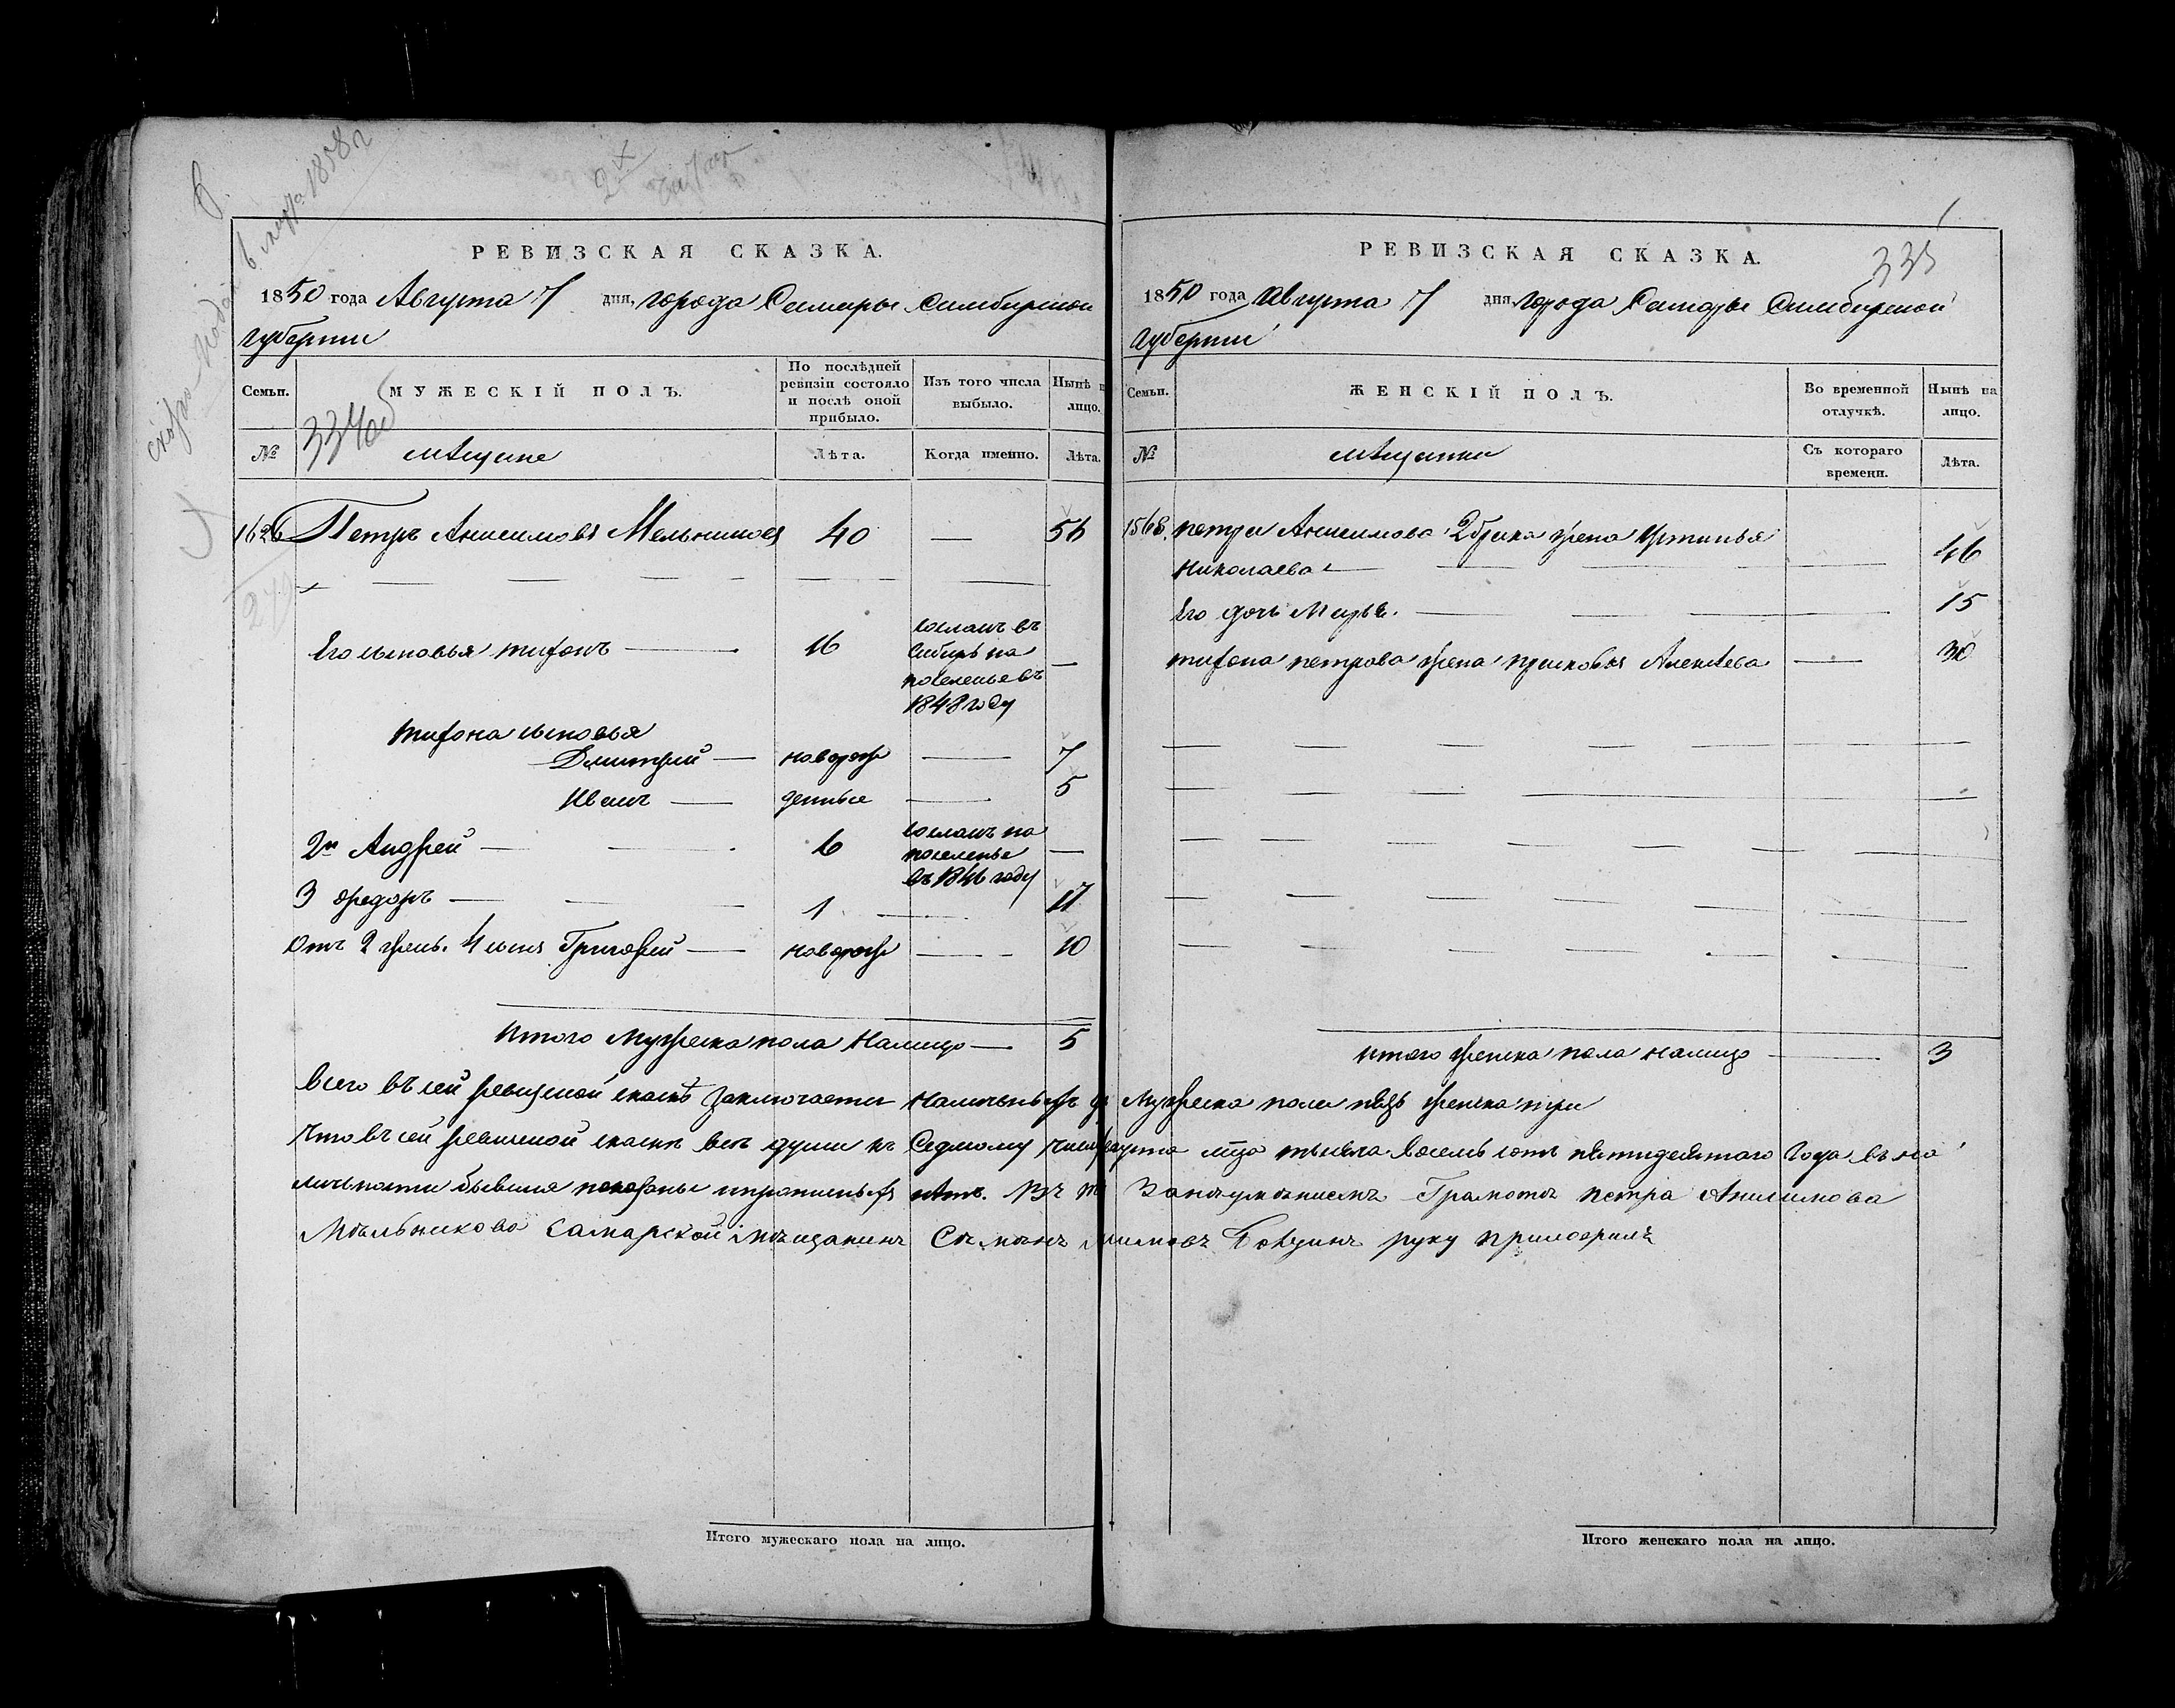 в марта 1858 г
РЕВИЗСКАЯ СКАЗКА.
1850 года Августа 7 дня, города Самары Симбирской
губернии
Семьи.
МУЖЕСКІЙ ПОЛЪ.
По послѣдней ревизіи состояло и послѣ оной прибыло.
Изъ того числа выбыло.
Нынѣ на лицо.
334об
№
мѣщане
Лѣта.
Когда именно.
Лѣта.
1626 Петръ Анисимовъ Мельниковъ 40 — 56
Его сыновья Трифонъ — 16 сосланъ въ
Сибирь на —
поселенье въ
1848 году
Трифона сыновья
Дмитрий — новорож — 7
Иванъ — денные — 5
2й Андрей — 6 сосланъ на
поселенье —
въ 1846 году
3 Федоръ — 1 — 17
Отъ 2 жены. 4 сынъ Григорий — новорож — 10
Итого Мужеска пола Налицо — 5
РЕВИЗСКАЯ СКАЗКА.
335
1850 года Августа 7 дня города Самары Симбирской
губернии
Семьи.
ЖЕНСКІЙ ПОЛЪ.
Во временной отлучкѣ.
Нынѣ на лицо.
№
мѣщанки
Съ котораго времени.
Лѣта.
1568. Петра Анисимова 2 брака жена Устинья
Николаева — 46
Его дочь Марья. — 15
Трифона Петрова жена Прасковья Алексѣева — 30
итого женска пола налицо — 3
Всего въ сей ревизской сказкѣ заключается Наличныхъ Мужеска пола пять женска три
Что въ сей ревизской сказкѣ всѣ души къ Седьмому числу августа мца тысяча восемь сотъ пятидесятаго Года въ на
личности бывшия показаны и прописныхъ нѣтъ. Въ Грамоты Петра Анисимова
Мельникова Самарской мѣщанинъ руку приложилъ
Итого мужескаго пола на лицо.
Итого женскаго пола на лицо.